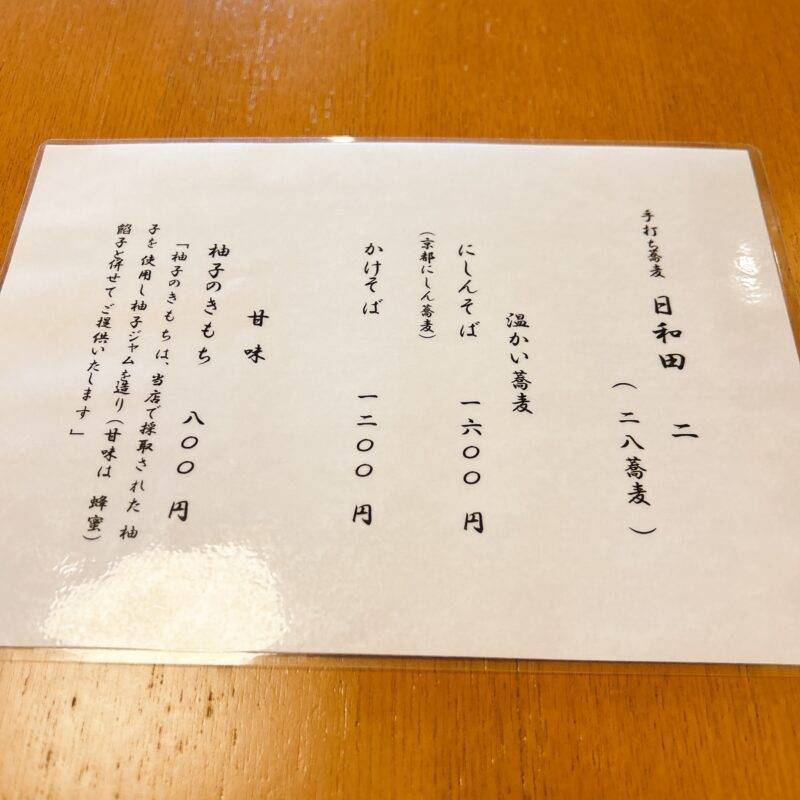 手打ち蕎麦 日和田 二
(二八蕎麦)
温かい蕎麦
にしんそば 一六〇〇 円
(京都にしん蕎麦)
かけそば 一二〇〇 円
甘味
柚子のきもち 八〇〇 円
「柚子のきもちは、当店で採取された 柚
子を使用し柚子ジャムを造り(甘味は 蜂蜜)
餡子と併せてご提供いたします」